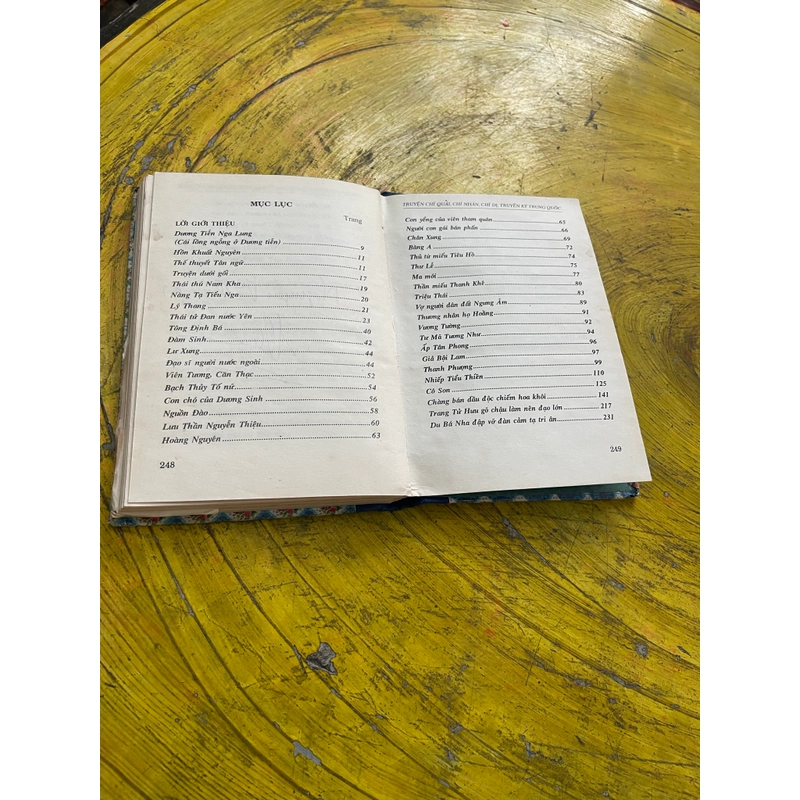 MỤC LỤC
Trang
LỜI GIỚI THIỆU
Dương Tiễn Nga Lung
(Cái lồng ngỗng ở Dương tiễn) 9
Hồn Khuất Nguyên 11
Thế thuyết Tân ngữ 11
Truyện dưới gối 17
Thái thú Nam Kha 19
Nàng Tạ Tiểu Nga 20
Lý Thang 21
Thái tử Đan nước Yên 23
Tống Định Bá 40
Đàm Sinh 42
Lư Xung 44
Đạo sĩ người nước ngoài 44
Viên Tương, Căn Thạc 52
Bạch Thủy Tố nữ 54
Con chó của Dương Sinh 56
Nguồn Đào 58
Lưu Thần Nguyễn Thiệu 60
Hoàng Nguyên 63
248
TRUYỆN CHÍ QUÁI, CHÍ NHÂN, CHÍ DỊ, TRUYỀN KỲ TRUNG QUỐC
Con yểng của viên tham quân 65
Người con gái bán phấn 66
Chân Xung 69
Bàng A 72
Thủ từ miếu Tiêu Hồ 74
Thư Lễ 75
Ma mới 77
Thần miếu Thanh Khê 80
Triệu Thái 83
Vợ người dân đất Ngưng Âm 89
Thương nhân họ Hoàng 91
Vương Tường 92
Tư Mã Tương Như 94
Ấp Tân Phong 96
Giả Bội Lam 97
Thanh Phượng 99
Nhiếp Tiểu Thiến 110
Cô Son 125
Chàng bán dầu độc chiếm hoa khôi 141
Trang Tử Hưu gõ chậu làm nên đạo lớn 217
Du Bá Nha đập vỡ đàn cảm tạ tri ân 231
249